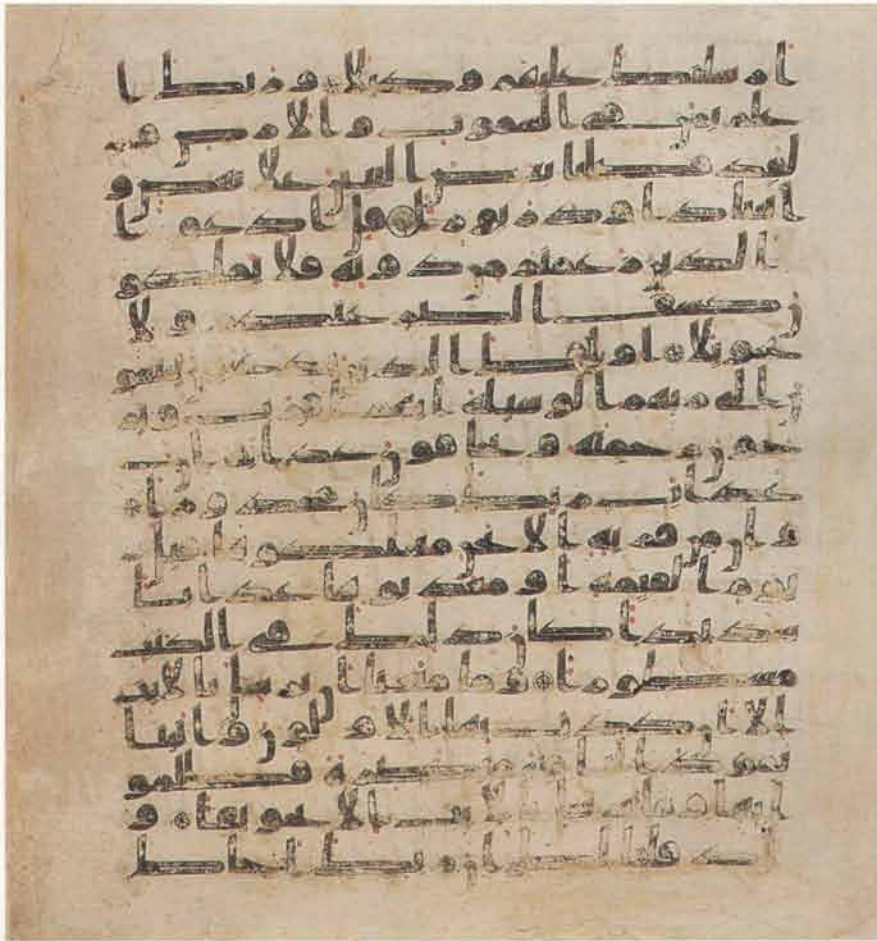 ا ارسلنك عليهم وكيلا وربك ا
علم بمن في السموت والارض و
لقد فضلنا بعض النبين على بعض و
اتينا داود زبورا قل ادعوا
الذين زعمتم من دونه فلا يملكو
ن كشف الضر عنكم ولا
تحويلا اولئك الذين يدعون يبتغو
ن الى ربهم الوسيلة ايهم اقرب وير
جون رحمته ويخافون عذابه ان
عذاب ربك كان محذورا
وان من قرية الا نحن مهلكوها قبل
يوم القيمة او معذبوها عذابا
شديدا كان ذلك في الكتب
مسطورا وما منعنا ان نرسل بالايت
الا ان كذب بها الاولون واتينا
ثمود الناقة مبصرة فظلمو
ا بها وما نرسل بالايت الا تخويفا و
اذ قلنا لك ان ربك احاط